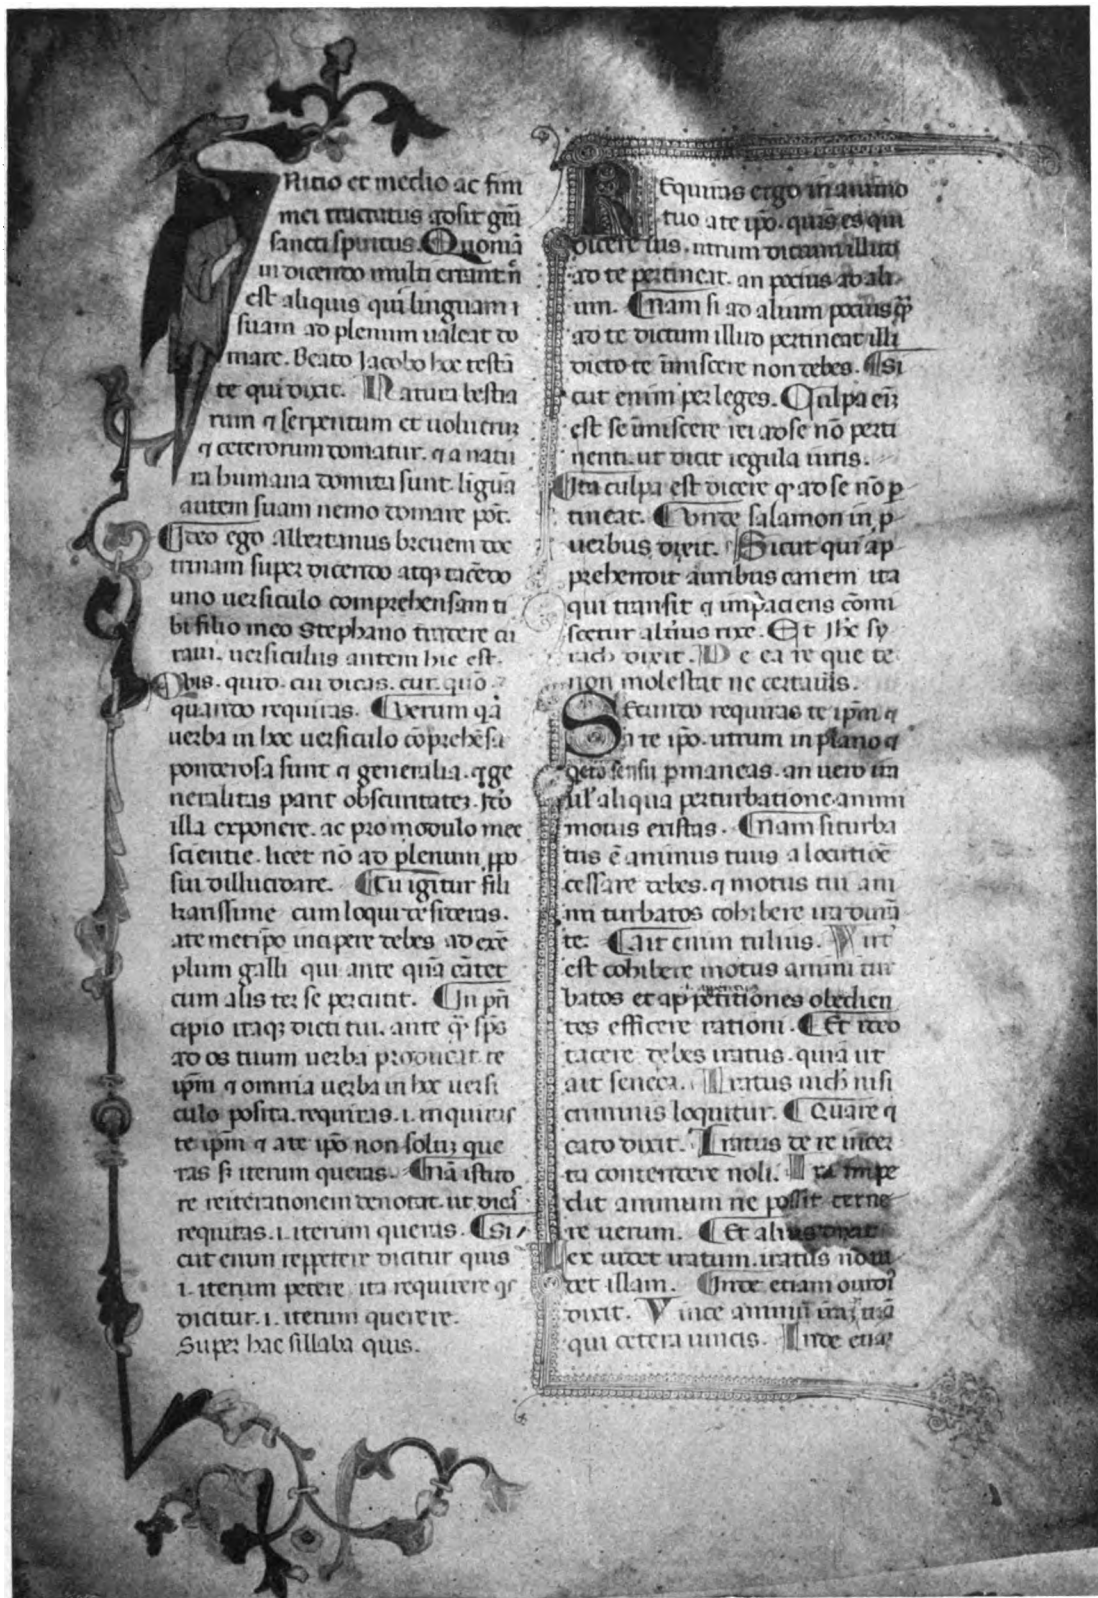 Nitio et medio ac fini
mei tractatus assit gr̃a
sancti spiritus. Quoniã
in dicendo multi errant ñ
est aliquis qui linguam
suam ad plenum ualeat do
mare. Beato Jacobo hoc testã
te qui dixit. Natura bestia
rum ⁊ serpentum et uolucrũ
⁊ ceterorum domatur. ⁊ a natu
ra humana domita sunt. lignua
autem suam nemo domare põt.
Ideo ego Albertanus breuem doc
trinam super dicendo atqꝫ tacẽdo
uno uersiculo comprehensam ti
bi filio meo Stephano tradere cu
raui. uersiculus autem hic est.
quis. quid. cui dicas. cur. quõ.
quando requiras. Uerum q̃a
uerba in hoc uersiculo cõprehẽsa
ponderosa sunt ⁊ generalia. ⁊ ge
neralitas parit obscuritateꝫ. Iđo
illa exponere. ac pro modulo mee
scientie. licet nõ ad plenum ꝓpo
sui dillucidare. Tu igitur fili
karissime cum loqui desideras.
a temetip̃o incipere debes ad exẽ
plum galli qui ante quã cãtet
cum alis ter se percutit. In prĩ
cipio itaqꝫ dicti tui. ante q̃ sp̃s
ad os tuum uerba producat. te
ip̃m ⁊ omnia uerba in hoc uersi
culo posita. requiras. i. inquiras
te ip̃m ⁊ a te ip̃o non soluꝫ que
ras sꝫ iterum queras. Nã ista do
re reiterationem denotat. ut dicẽ
requiras. i. iterum queras. Si
cut enim reppetere dicitur quis
i. iterum petere ita requirere q̃s
dicitur. i. iterum querere.
Super hac sillaba quis.
REquiras ergo in animo
tuo a te ip̃o. quis es qui
dicere uis. utrum dictum illud
ad te pertineat. an pocius ad ali
um. Nam si ad alium pocius q̃
ad te dictum illud pertineat illi
dicto te ĩmiscere non debes. Si
cut enim per leges. Culpa eñ
est se ĩmiscere rei ad se nõ perti
nenti. ut dicit regula iuris.
Ita culpa est dicere q̃ ad se nõ ꝑ
tineat. Unde salamon in ꝓ
uerbiis dixit. Sicut qui ap
prehendit auribus canem ita
qui transit ⁊ imp̃aciens cõmi
scetur alterius rixe. Et Jhc sy
rach dixit. De ea re que te
non molestat ne certauis.
SEcundo requiras te ip̃m ⁊
a te ip̃o. utrum in plano ⁊
q̃eto sensu ꝑmaneas. an uero ira
ul' aliqua perturbatione animi
motus existas. Nam si turba
tus ẽ animus tuus a locutiõe
cessare debes. ⁊ motus tui ani
mi turbatos cohibere ira durã
te. Ait enim tulius. Virt'
est cohibere motus animi tur
batos et appetitiones obedien
tes efficere rationi. Et ideo
tacere debes iratus. quia ut
ait seneca. Iratus nich nisi
criminis loquitur. Quare ⁊
cato dixit. Iratus de re incer
ta contendere noli. Ira impe
dit animum ne possit cerne
re uerum. Et alius dixit
Lex uidet iratum. iratus nõ ui
det illam. Inde etiam ouidi'
dixit. Vince animũ iraꝫ tuã
qui cetera uincis. Inde etiaꝫ